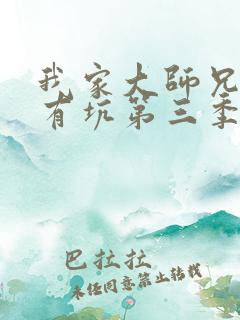 我家大师兄
有坑第三季
巴拉拉
未经同意禁止转载